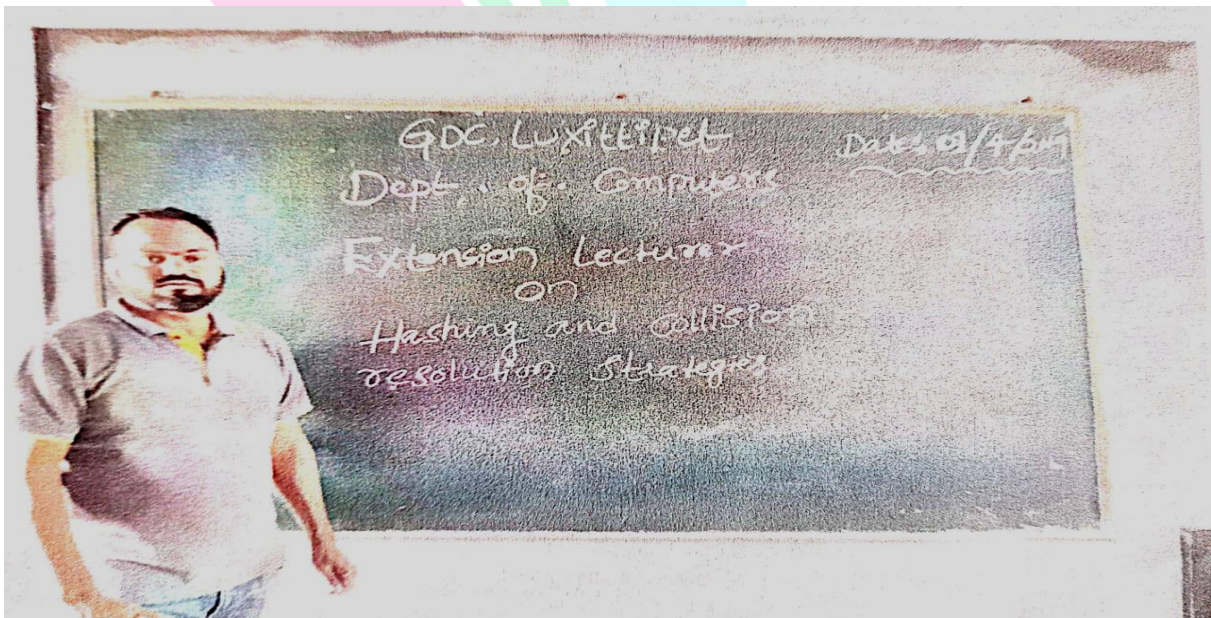 GDC, Luxittipet
Dept. of. Computers
Extension Lecturer
on
Hashing and collision
resolution Strategies.
Date: